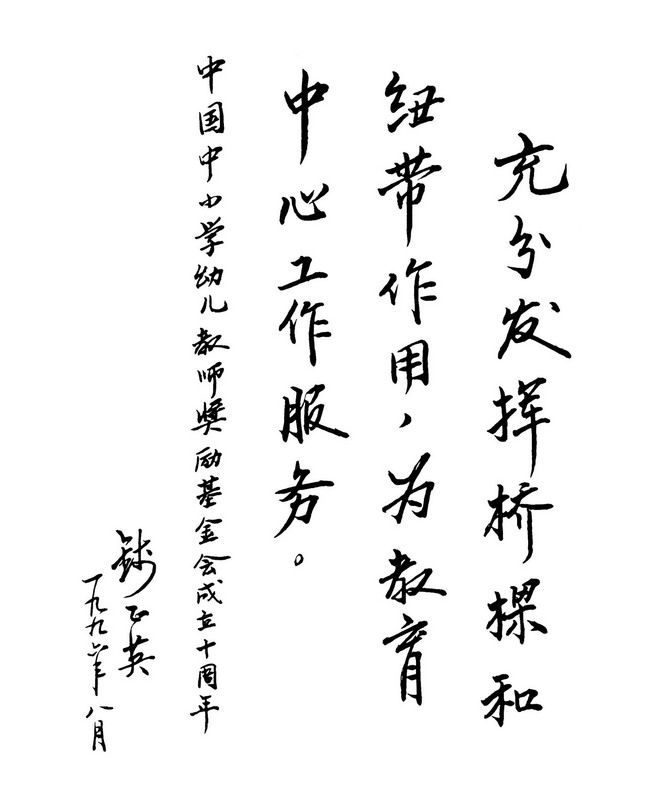 充分发挥桥梁和
纽带作用，为教育
中心工作服务。
中国中小学幼儿教师奬励基金会成立十周年
钱正英
一九九六年八月